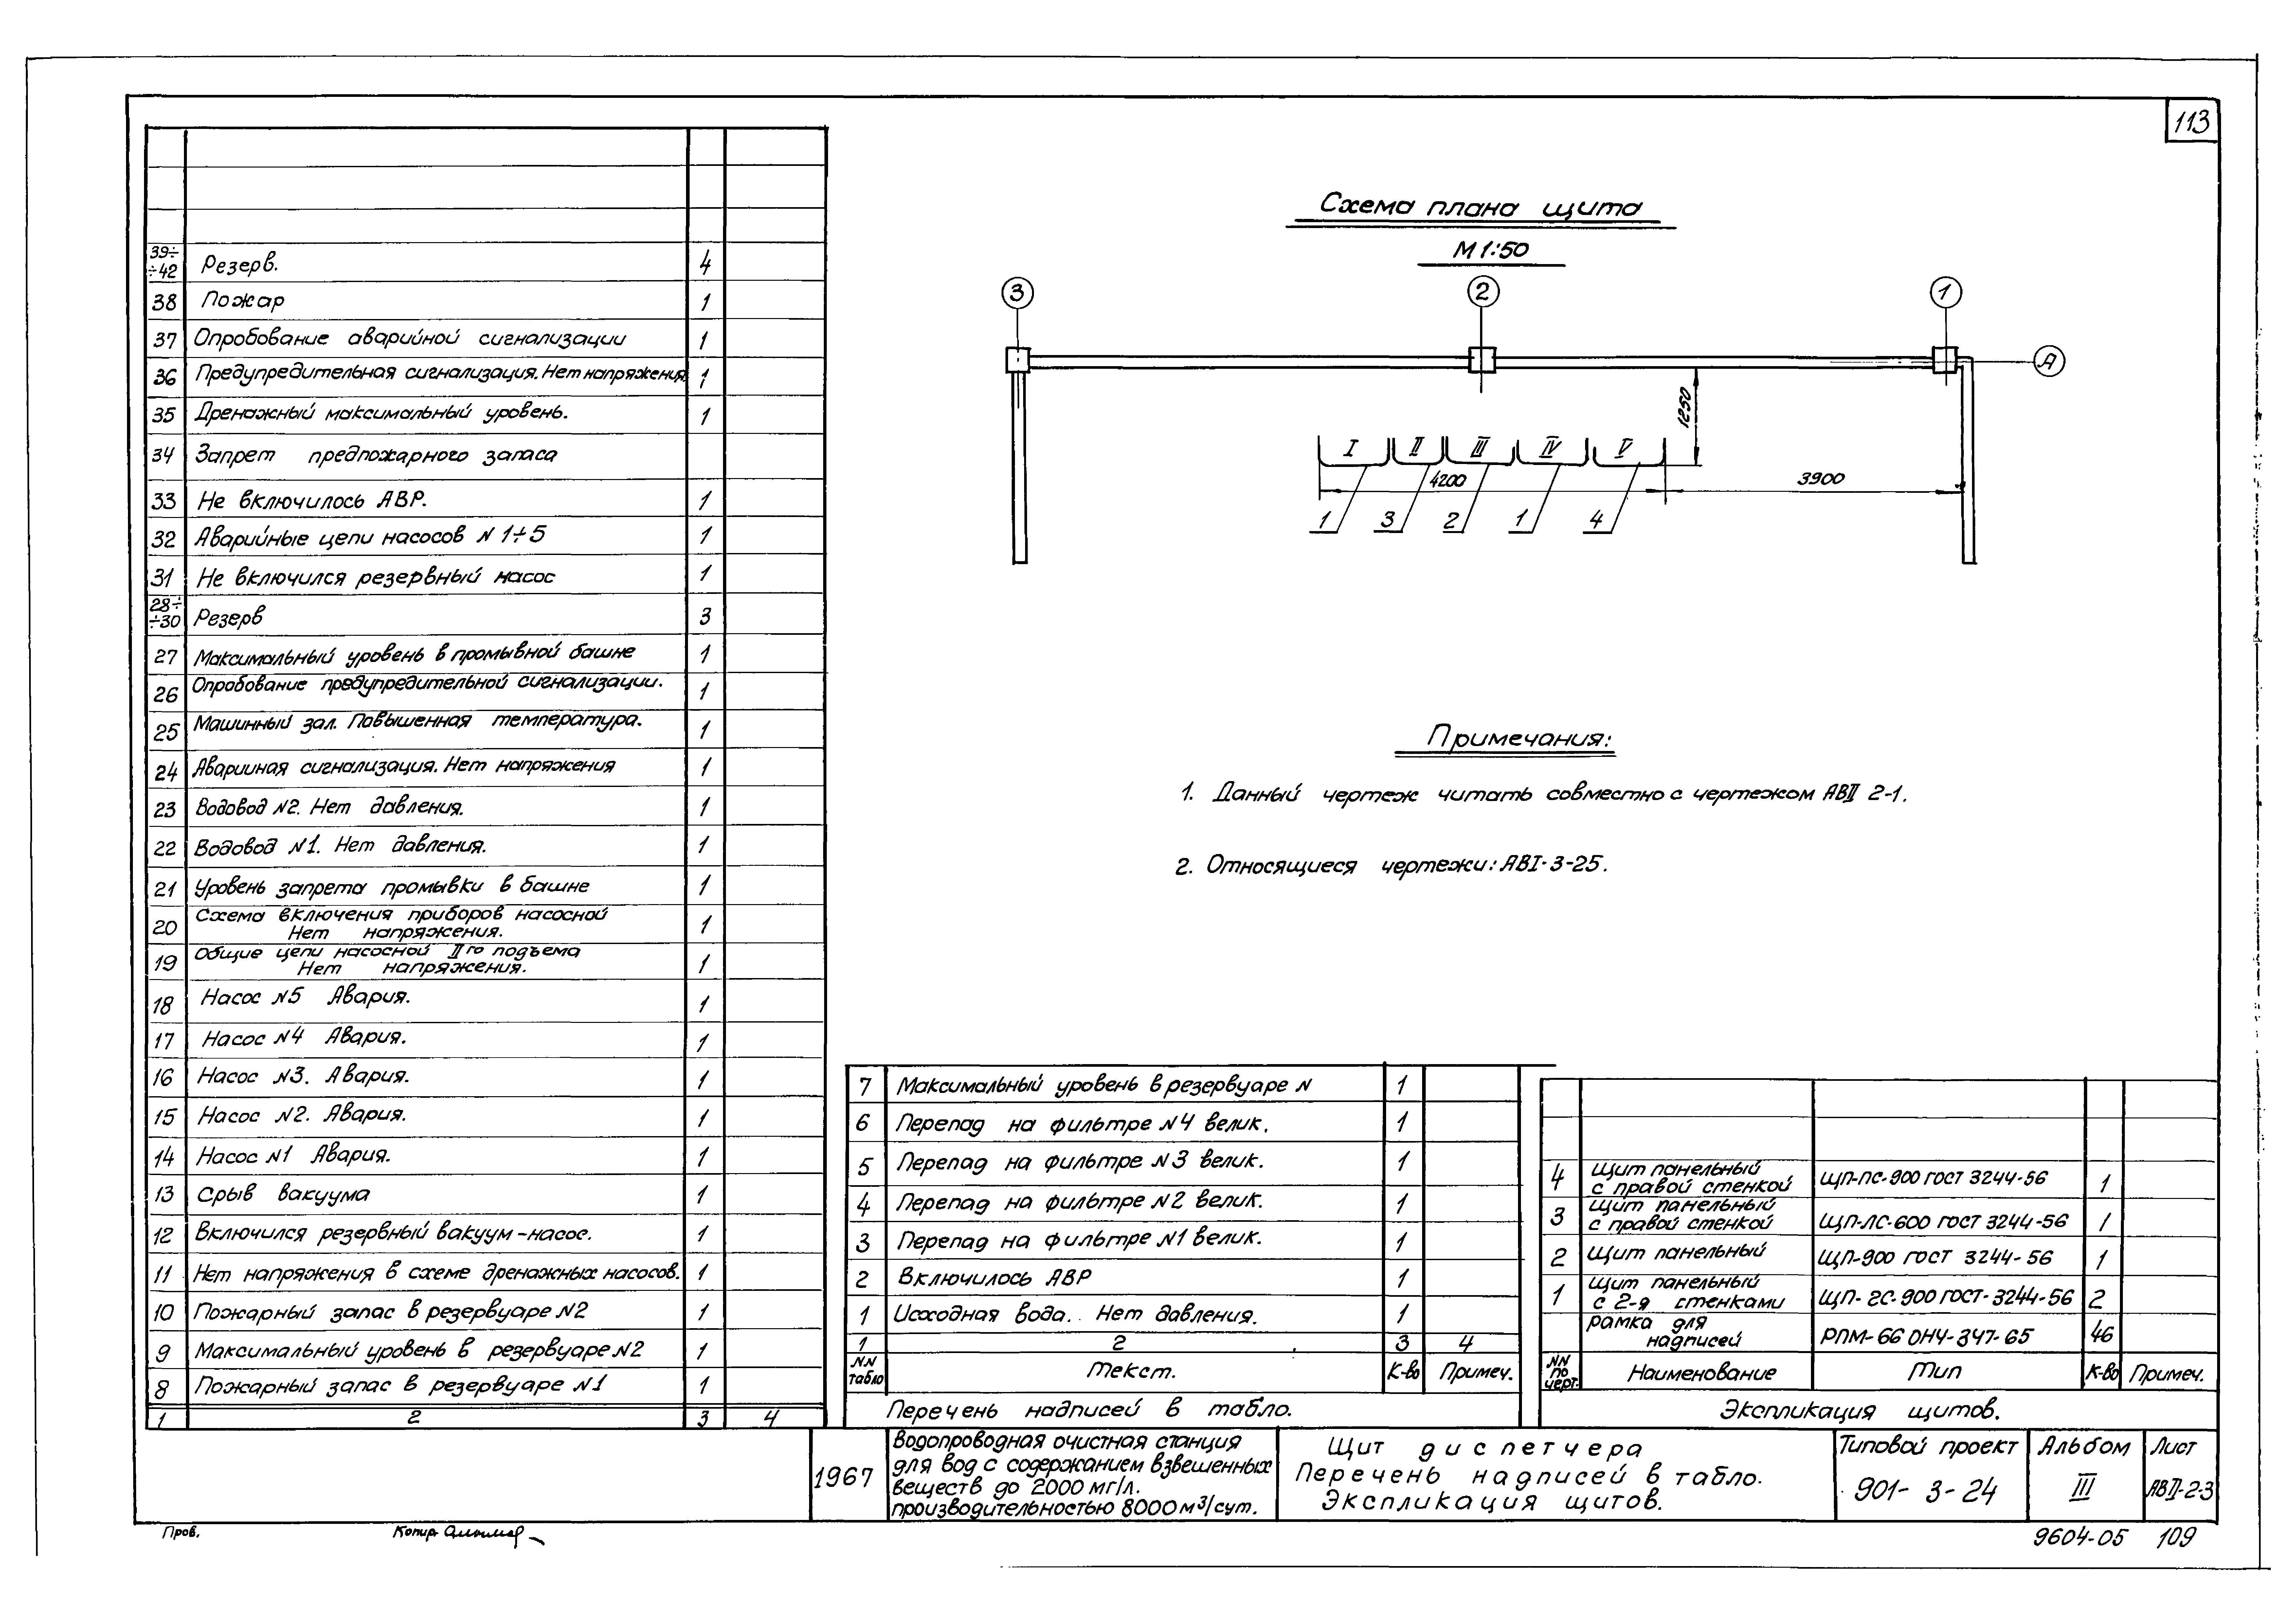 113
39÷
÷42 Резерв. 4
38 Пожар 1
37 Опробование аварийной сигнализации 1
36 Предупредительная сигнализация. Нет напряжения 1
35 Дренажный максимальный уровень. 1
34 Запрет предпожарного запаса
33 Не включилось АВР. 1
32 Аварийные цепи насосов N 1÷5 1
31 Не включился резервный насос 1
28÷
÷30 Резерв 3
27 Максимальный уровень в промывной башне 1
26 Опробование предупредительной сигнализации. 1
25 Машинный зал. Повышенная температура. 1
24 Аварииная сигнализация. Нет напряжения 1
23 Водовод N2. Нет давления. 1
22 Водовод N1. Нет давления. 1
21 Уровень запрета промывки в башне 1
20 Схема включения приборов насосной
Нет напряжения. 1
19 Общие цепи насосной IIго подъема
Нет напряжения. 1
18 Насос N5 Авария. 1
17 Насос N4 Авария. 1
16 Насос N3. Авария. 1
15 Насос N2. Авария. 1
14 Насос N1 Авария. 1
13 Срыв вакуума 1
12 Включился резервный вакуум-насос. 1
11 Нет напряжения в схеме дренажных насосов. 1
10 Пожарный запас в резервуаре N2 1
9 Максимальный уровень в резервуаре N2 1
8 Пожарный запас в резервуаре N1 1
1 2 3 4
Схема плана щита
М 1:50
3 2 1
А
1250
I II III IV V
4200 3900
1 3 2 1 4
Примечания:
1. Данный чертеж читать совместно с чертежом АВII 2-1.
2. Относящиеся чертежи: АВI-3-25.
7 Максимальный уровень в резервуаре N 1
6 Перепад на фильтре N4 велик. 1
5 Перепад на фильтре N3 велик. 1
4 Перепад на фильтре N2 велик. 1
3 Перепад на фильтре N1 велик. 1
2 Включилось АВР 1
1 Исходная вода. Нет давления. 1
1 2 3 4
NN
табло Текст. К-во Примеч.
Перечень надписей в табло.
4 Щит панельный
с правой стенкой ЩП-ПС-900 ГОСТ 3244-56 1
3 Щит панельный
с правой стенкой ЩП-ЛС-600 ГОСТ 3244-56 1
2 Щит панельный ЩП-900 ГОСТ 3244-56 1
1 Щит панельный
с 2-я стенками ЩП-2С-900 ГОСТ-3244-56 2
рамка для
надписей РПМ-66 ОНЧ-347-65 46
NN
по
черт. Наименование Тип К-во Примеч.
Экспликация щитов.
1967
Водопроводная очистная станция
для вод с содержанием взвешенных
веществ до 2000 мг/л.
производительностью 8000 м3/сут.
Щит диспетчера
Перечень надписей в табло.
Экспликация щитов.
Типовой проект
901-3-24
Альбом
III
Лист
АВII-2-3
Пров. Копир.
9604-05 109